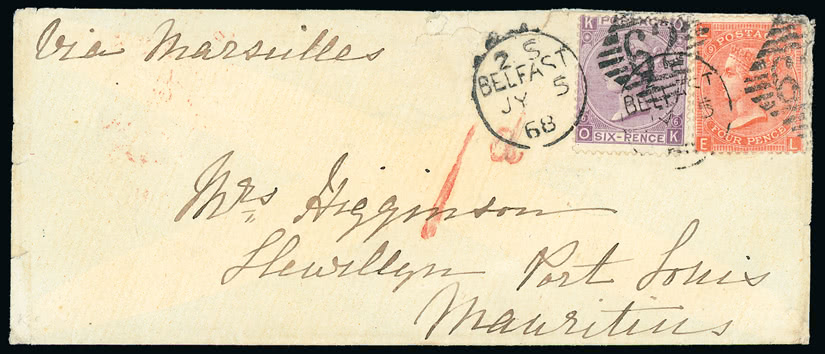 Via Marseilles
K POSTAGE
POSTA
2 S
BELFAST
JY 5
68
BELFAST
5
O SIX-PENCE K
FOUR PENCE
E L
1d
Mrs Higginson
Llewellyn Port Louis
Mauritius